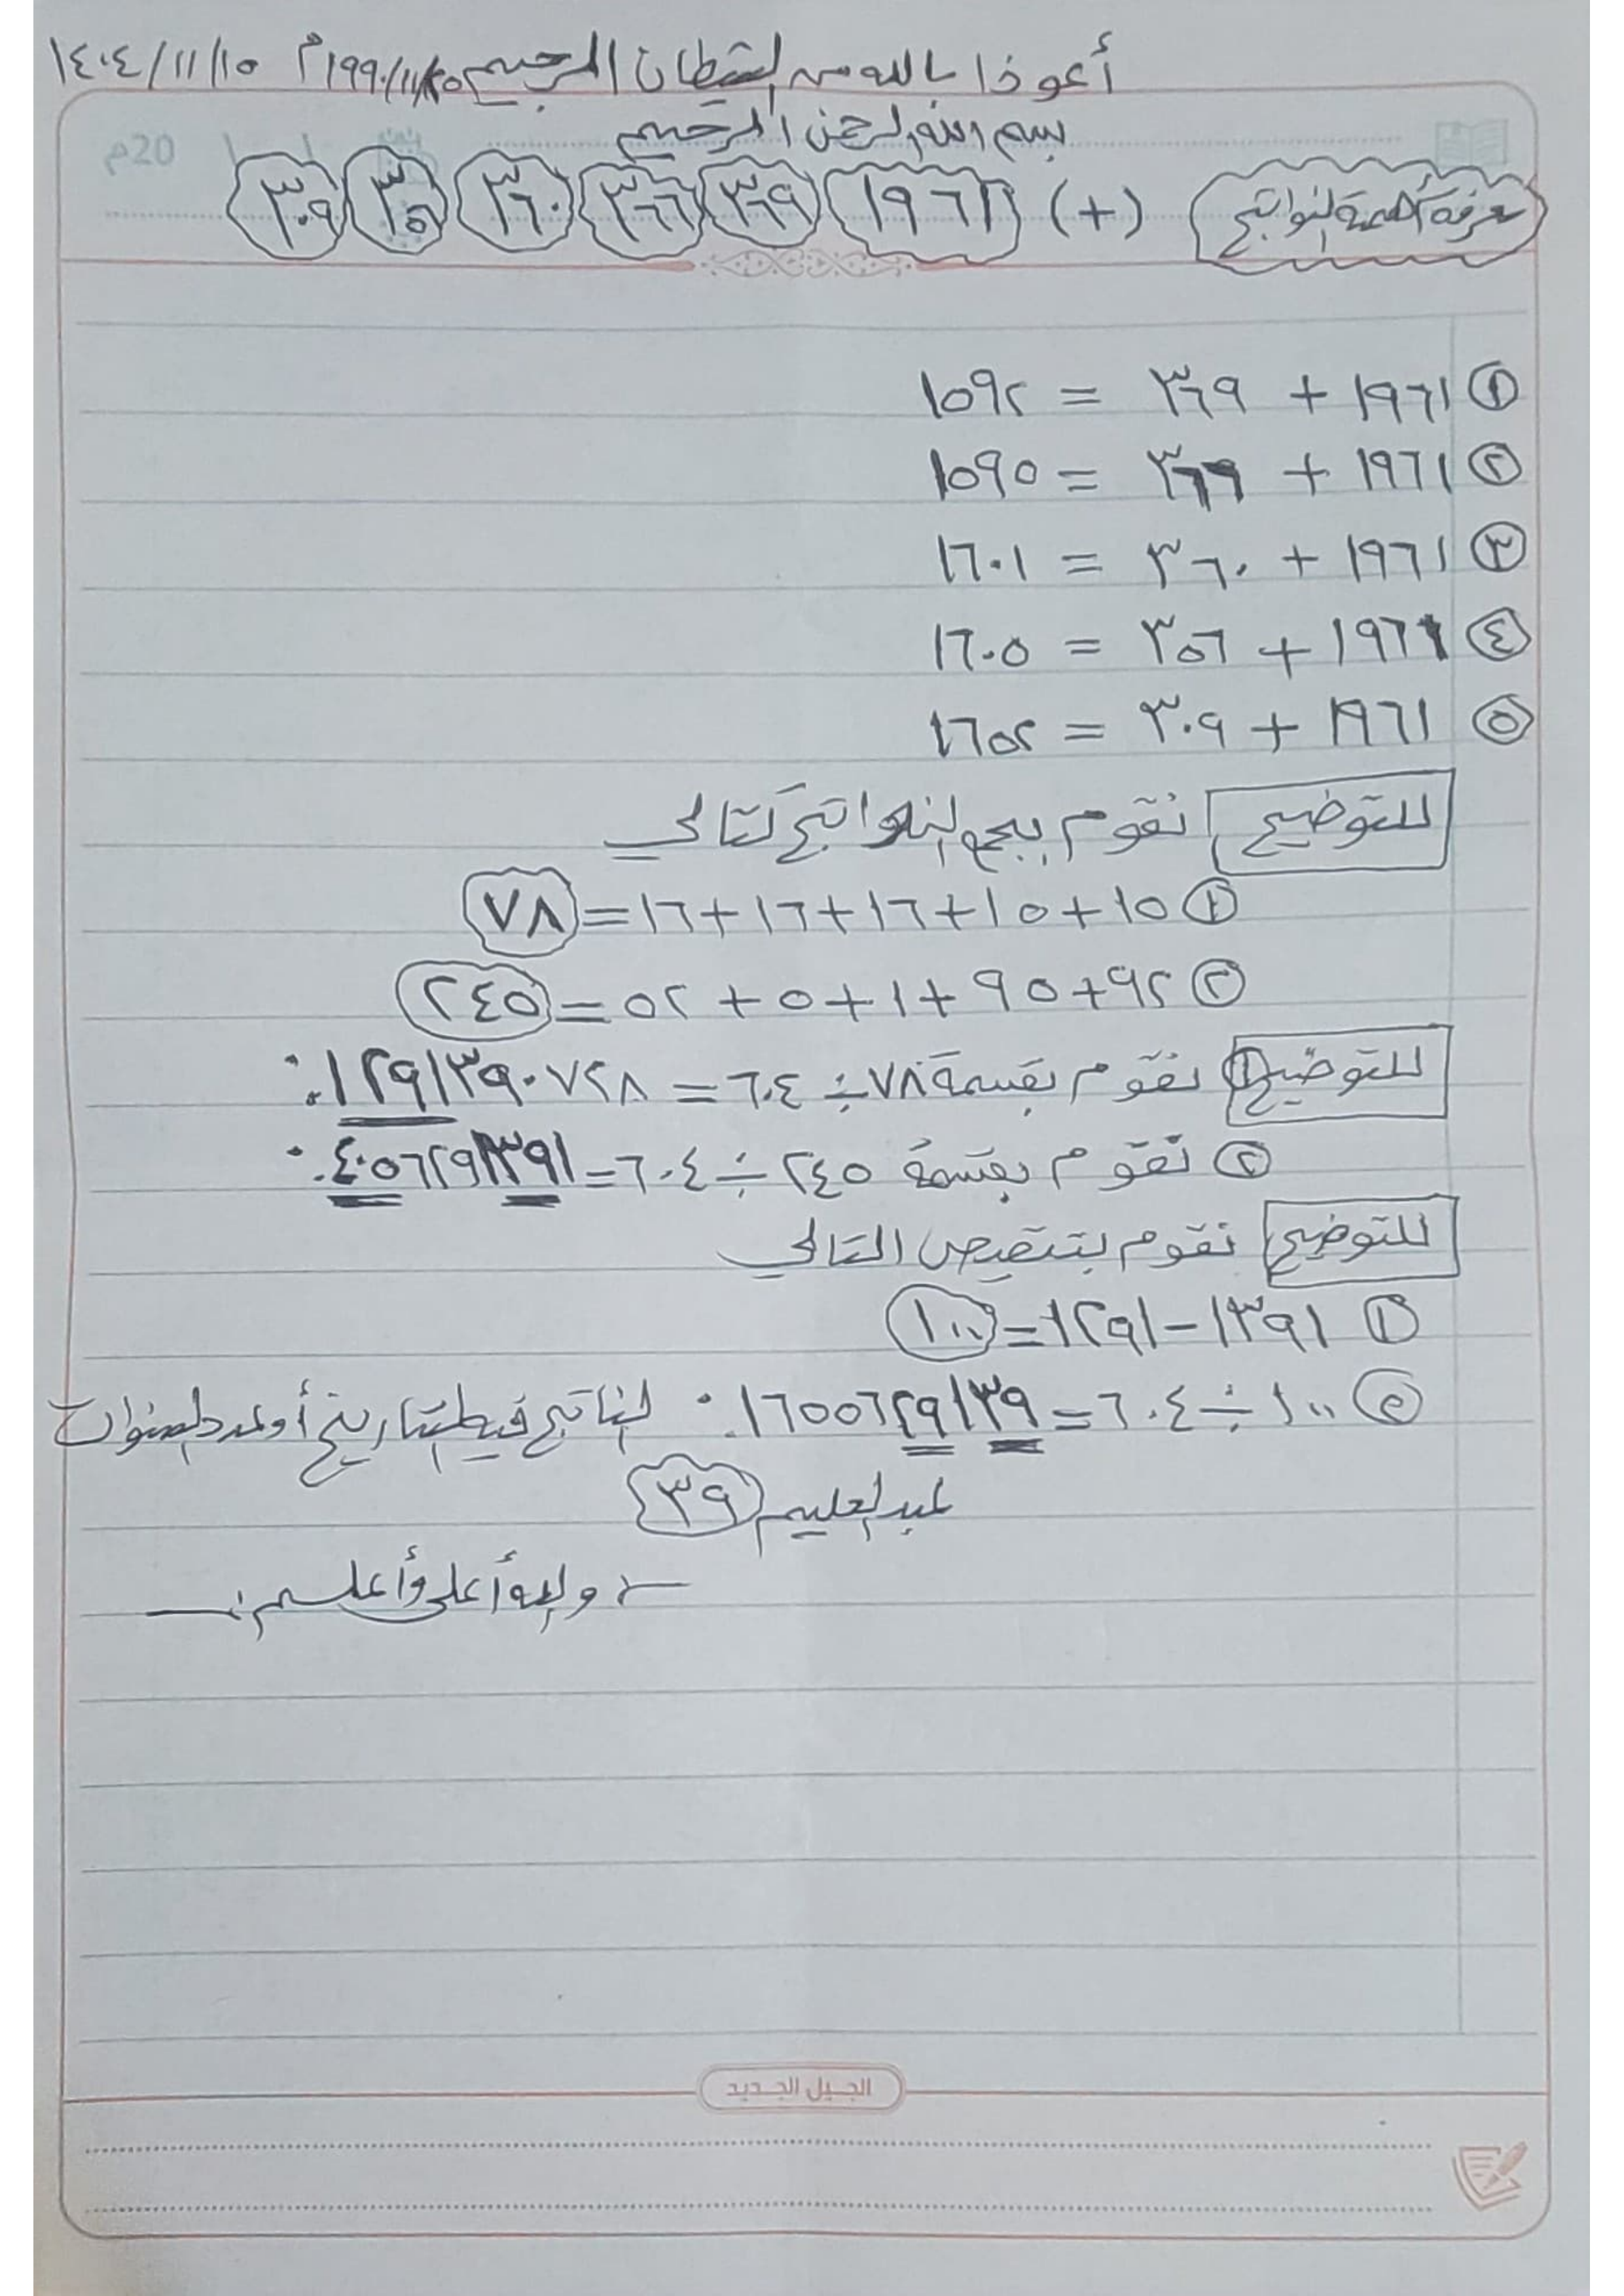 أعوذا بالله من الشيطان الرجيم ١٩٩٠/١١/٢٥م ١٤٠٤/١١/١٥
بسم الله الرحمن الرحيم
20م
معرفة أهمية النواتج (+) ١٩٦١ ٣٦٩ ٣٦٦ ٣٦٠ ٣٥٦ ٣٠٩
١ ١٩٦١ + ٣٦٩ = ١٥٩٢
٢ ١٩٦١ + ٣٦٦ = ١٥٩٥
٣ ١٩٦١ + ٣٦٠ = ١٦٠١
٤ ١٩٦١ + ٣٥٦ = ١٦٠٥
٥ ١٩٦١ + ٣٠٩ = ١٦٥٢
للتوضيح نقوم بجمع النواتج كتالي
١ ١٥+١٥+١٦+١٦+١٦=٧٨
٢ ٩٢+٩٥+١+٥+٥٢=٢٤٥
للتوضيح ١ نقوم بقسمة ٧٨÷٦٠٤=٠.١٢٩١٣٩٠٧٢٨
٢ نقوم بقسمة ٢٤٥÷٦٠٤=٠.٤٠٥٦٢٩١٣٩١
للتوضيح نقوم بتنقيص التالي
١ ١٣٩١-١٢٩١=١٠٠
٢ ١٠٠÷٦٠٤=٠.١٦٥٥٦٢٩١٣٩ الناتج فيه التاريخ أو عدد السنوات
عبدالعليم ٣٩
والله أعلى وأعلم
الجيل الجديد